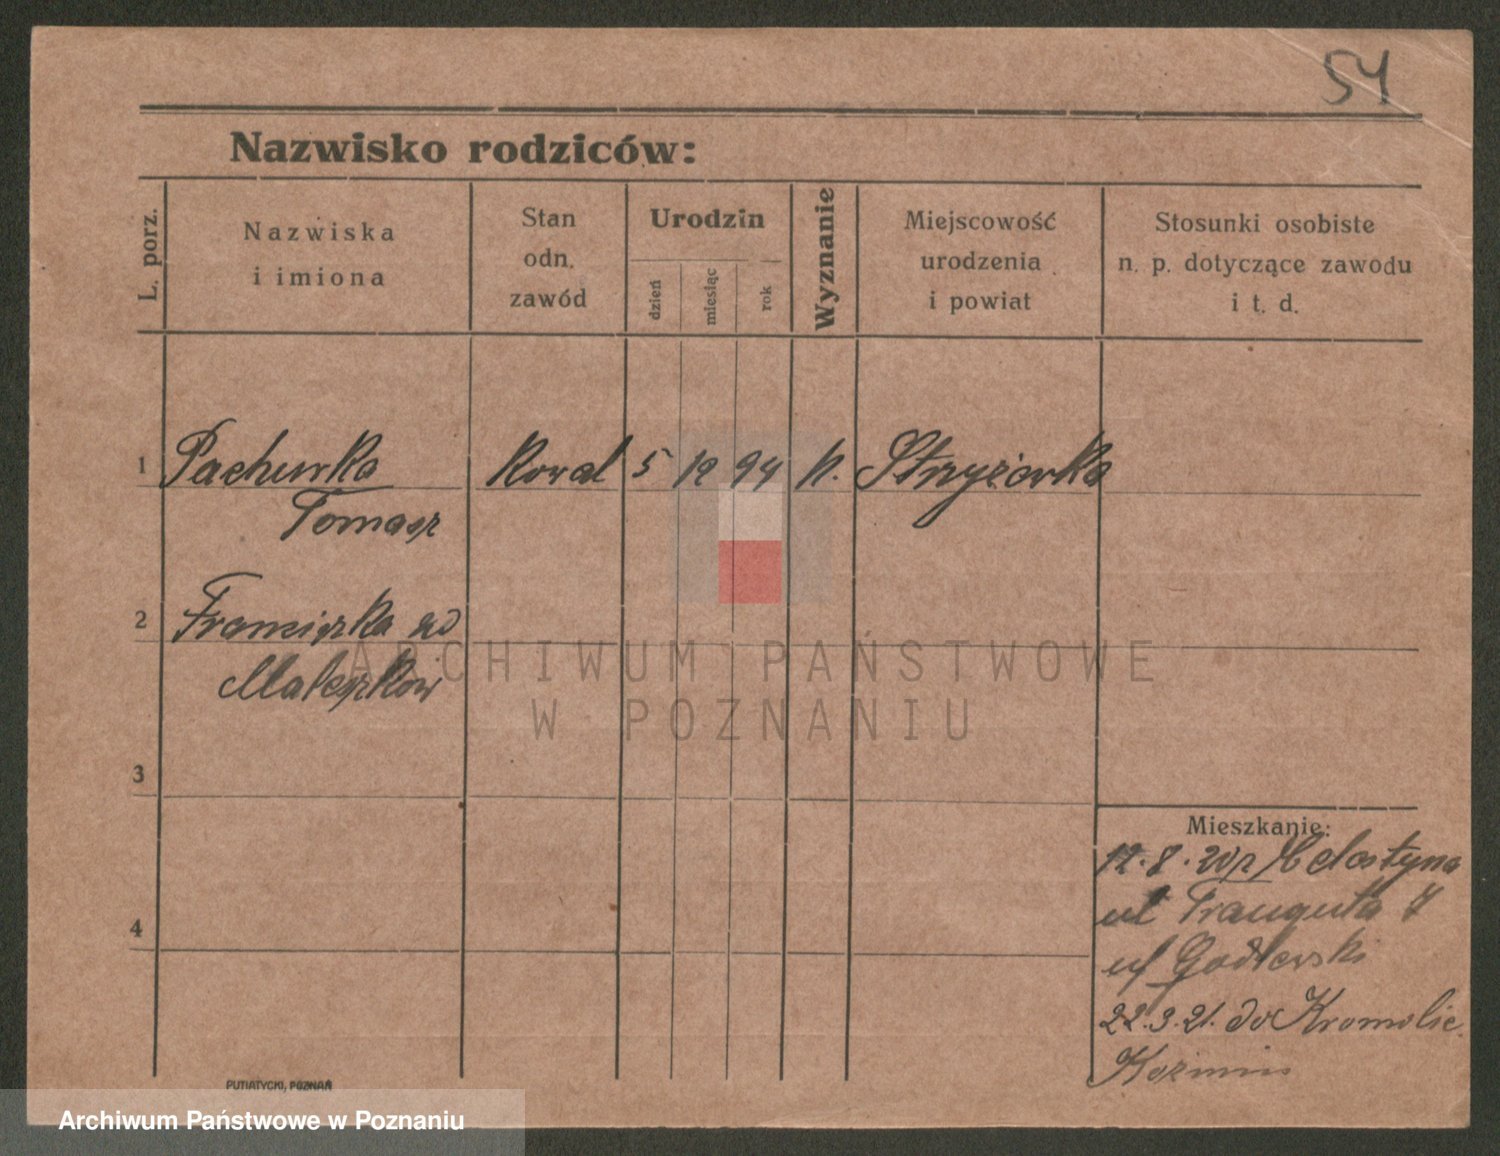 54
Nazwisko rodziców:
L. porz.
Nazwiska
i imiona
Stan
odn.
zawód
Urodzin
dzień
miesiąc
rok
Wyznanie
Miejscowość
urodzenia
i powiat
Stosunki osobiste
n. p. dotyczące zawodu
i t. d.
1 Pachurka Kowal 5 12 94 k. Strzyżewko
Tomasz
2 Franciszka zd
Małeszków
3
4
Mieszkanie:
12.8.20 z Gostyna
ul Traugutta 7
22.3.21. do Kromolic
Koźmin
PUTIATYCKI, POZNAŃ
ARCHIWUM PAŃSTWOWE
W POZNANIU
Archiwum Państwowe w Poznaniu